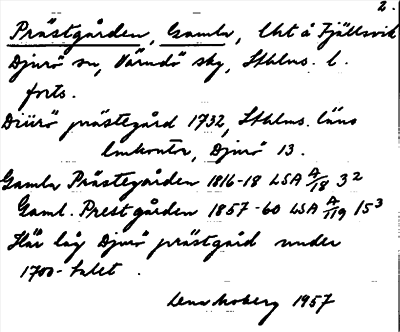 2.
Prästgården, Gamla, lht å Fjällsvik
Djurö sn, Värmdö skg, Sthlms. l.
forts.
Diürö prästegård 1732, Sthlms. läns
lmkontor, Djurö 13.
Gamla Prästegården 1816-18 LSA A/18 3²
Gaml. Prestgården 1857-60 LSA A/119 15³
Här låg Djurö prästgård under
1700-talet.
1957